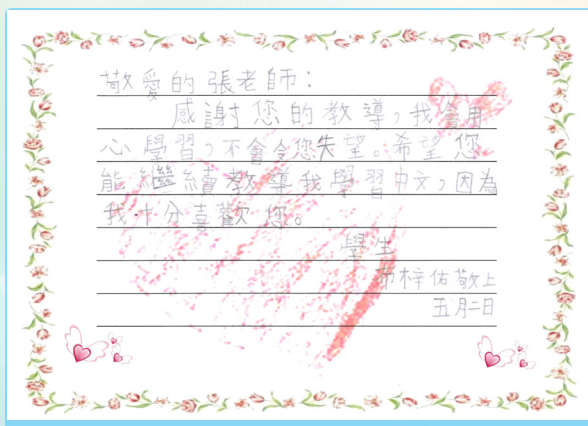 敬愛的張老師：
感謝您的教導，我會用
心學習，不會令您失望。希望您
能繼續教導我學習中文，因為
我十分喜歡您。
學生
梓佑敬上
五月二日